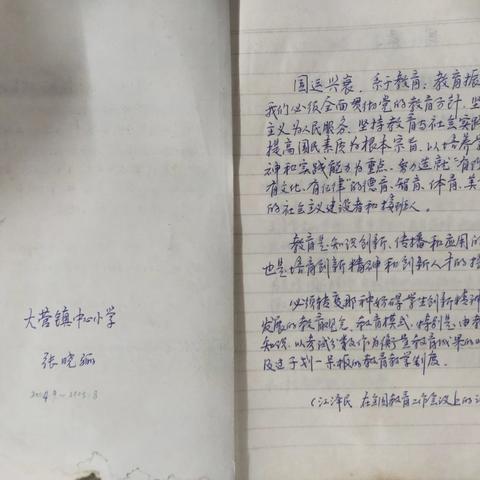 大营镇中心小学
张晓丽
2024.9~2025.8
国运兴衰，系于教育；教育振
我们必须全面贯彻党的教育方针，坚
主义为人民服务，坚持教育与社会实践
提高国民素质为根本宗旨，以培养
神和实践能力为重点，努力造就"有
有文化、有纪律"的德育、智育、体育、美
的社会主义建设者和接班人。
教育是知识创新、传播和应用的
也是培育创新精神和创新人才的
必须转变那种妨碍学生创新精神
发展的教育观念、教育模式，特别是由教
知识，以考试分数作为衡量教育成果的
及过于划一呆板的教育教学制度。
（江泽民 在全国教育工作会议上的